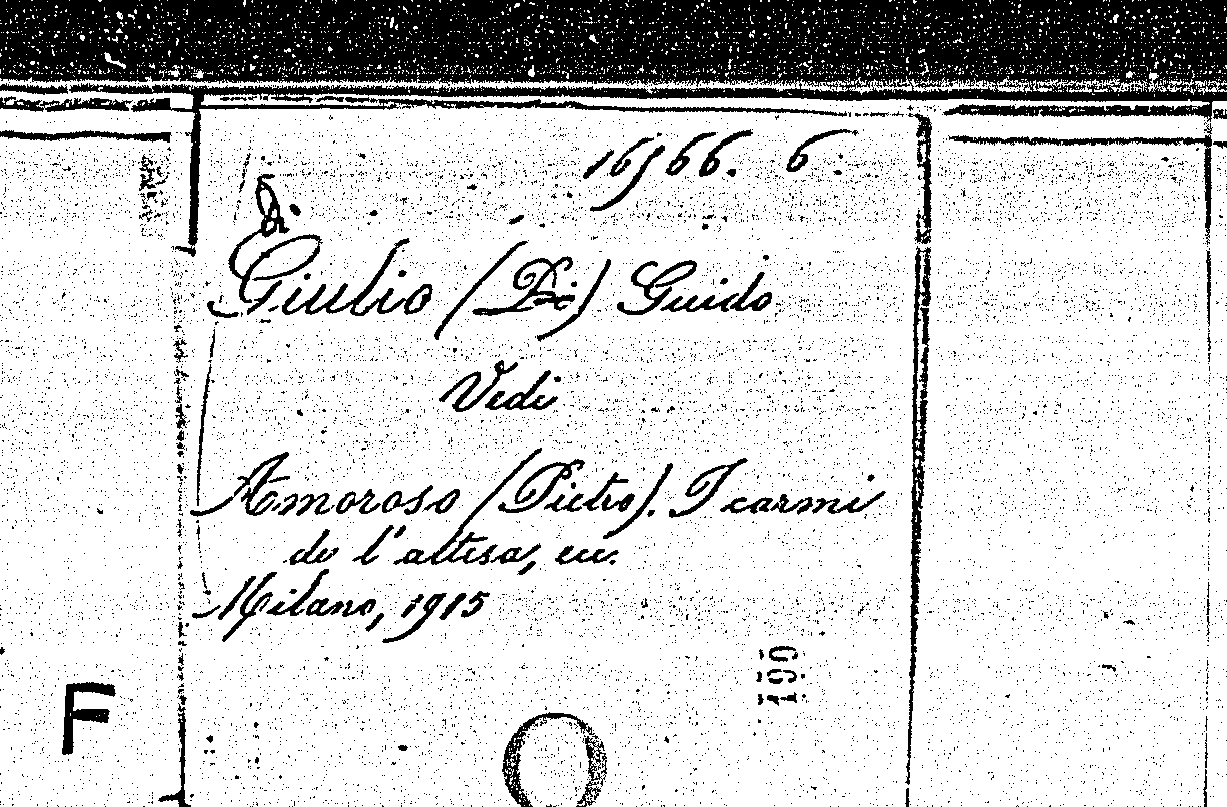 16566. 6.
di
Giulio (Di) Guido
Vedi
Amoroso (Pietro). I carmi
de l'attesa, ecc.
Milano, 1915
199
F